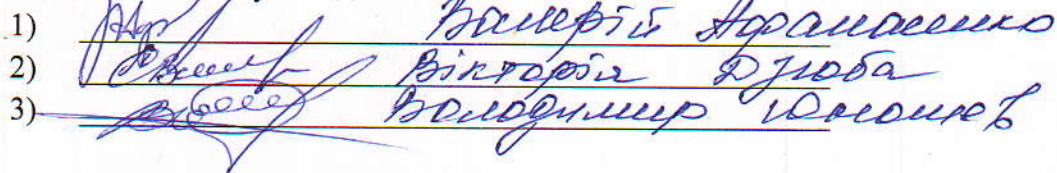 1) Валерій Афанасенко
2) Вікторія Дзюба
3) Володимир